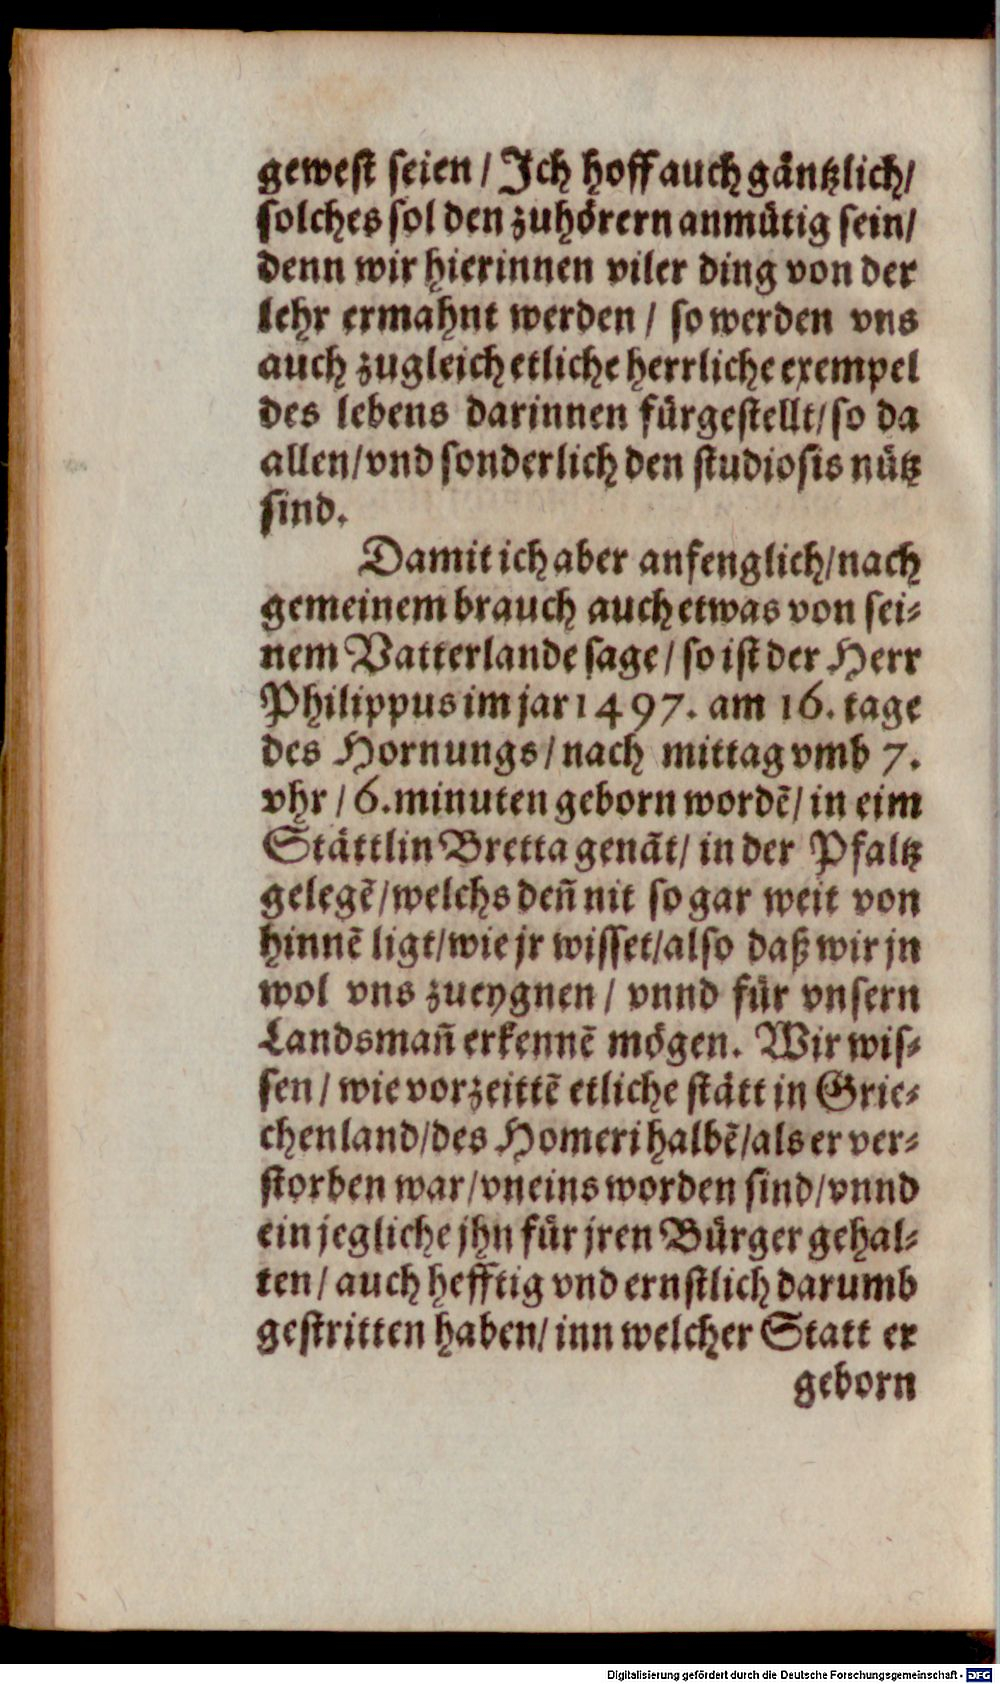 gewest seien / Ich hoff auch gäntzlich /
solches sol den zuhörern anmütig sein /
denn wir hierinnen viler ding von der
lehr ermahnt werden / so werden vns
auch zugleich etliche herrliche exempel
des lebens darinnen fürgestellt / so da
allen / vnd sonderlich den studiosis nütz
sind.
Damit ich aber anfenglich / nach
gemeinem brauch auch etwas von sei⸗
nem Vatterlande sage / so ist der Herr
Philippus im jar 1497. am 16. tage
des Hornungs / nach mittag vmb 7.
vhr / 6. minuten geborn wordē / in eim
Stättlin Bretta genāt / in der Pfaltz
gelegē / welchs deñ nit so gar weit von
hinnē ligt / wie jr wisset / also daß wir jn
wol vns zueygnen / vnnd für vnsern
Landsmañ erkennē mögen. Wir wis⸗
sen / wie vorzeittē etliche stätt in Grie⸗
chenland / des Homeri halbē / als er ver⸗
storben war / vneins worden sind / vnnd
ein jegliche jhn für jren Bürger gehal⸗
ten / auch hefftig vnd ernstlich darumb
gestritten haben / inn welcher Statt er
geborn
Digitalisierung gefördert durch die Deutsche Forschungsgemeinschaft - DFG